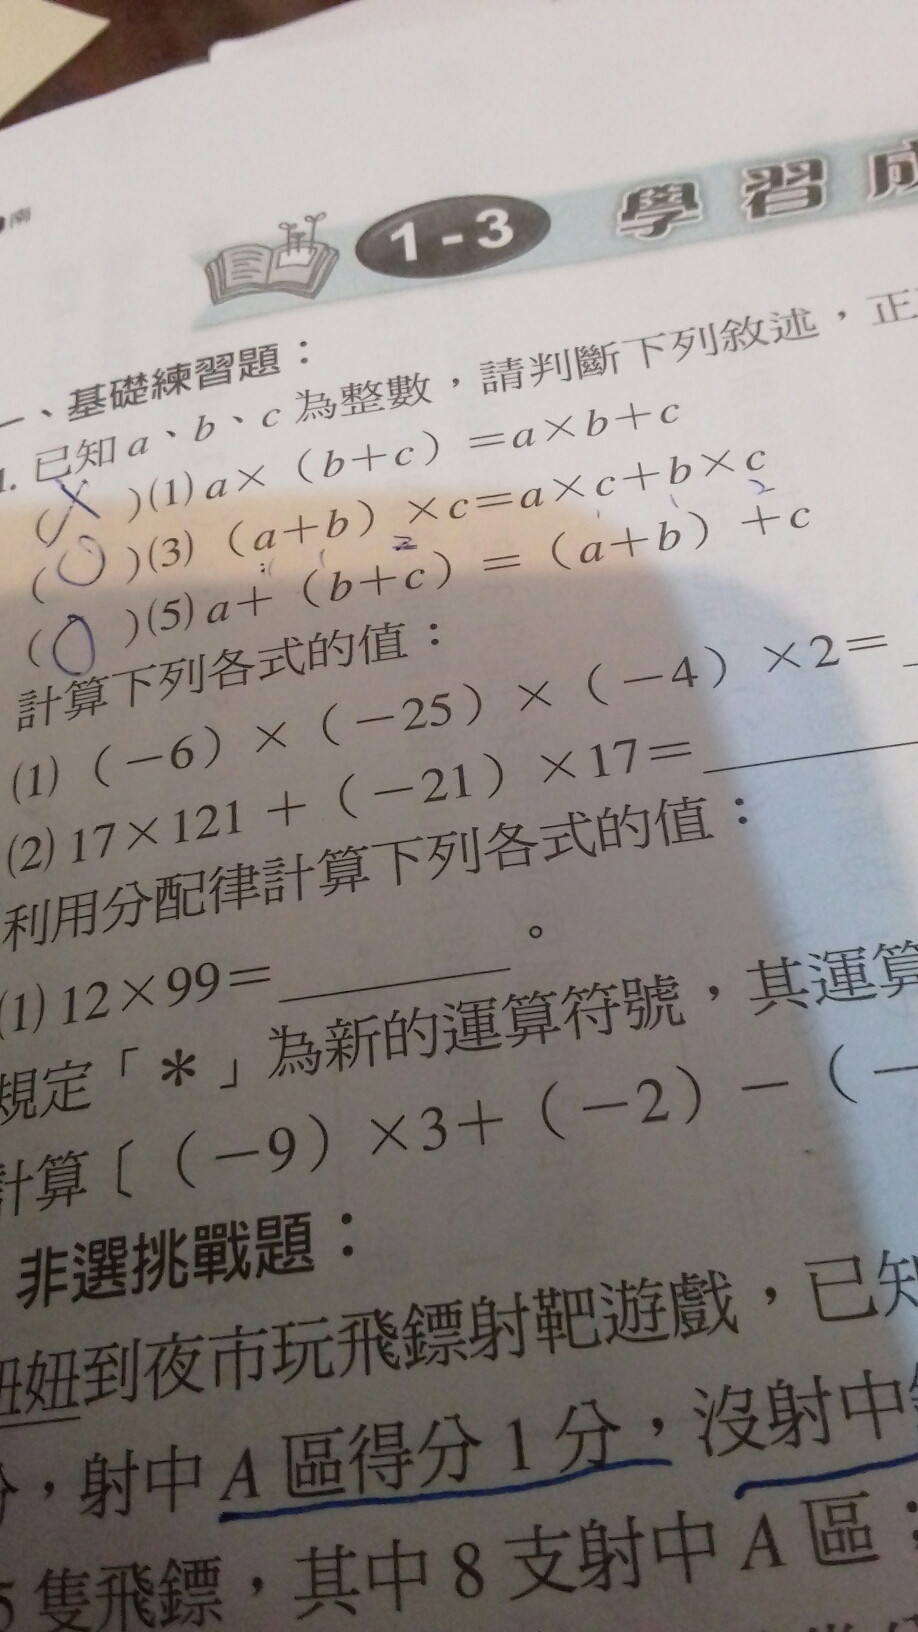 南
1-3 學習成
一、基礎練習題：
1. 已知a、b、c為整數，請判斷下列敘述，正
(X)(1) a×（b+c）=a×b+c
(O)(3)（a+b）×c=a×c+b×c
(O)(5) a+（b+c）=（a+b）+c
計算下列各式的值：
(1)（-6）×（-25）×（-4）×2=
(2) 17×121+（-21）×17=
利用分配律計算下列各式的值：
(1) 12×99= 。
規定「*」為新的運算符號，其運算
計算〔（-9）×3+（-2）-（-
非選挑戰題：
妞妞到夜市玩飛鏢射靶遊戲，已知
分，射中A區得分1分，沒射中
5隻飛鏢，其中8支射中A區；